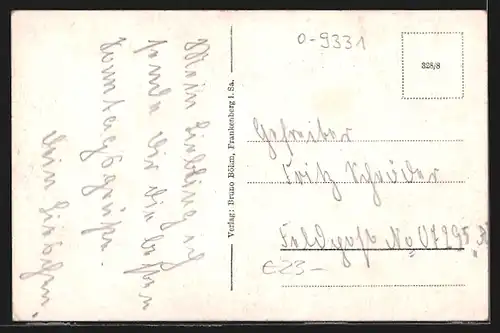 0-9331
328/8
Mein Liebling ich
sende dir die besten
Sonntagsgrüße.
Dein Liebchen
Verlag: Bruno Böhm, Frankenberg i. Sa.
Gefreiter
Fritz Schröder
Feldpost No 07295
€23-